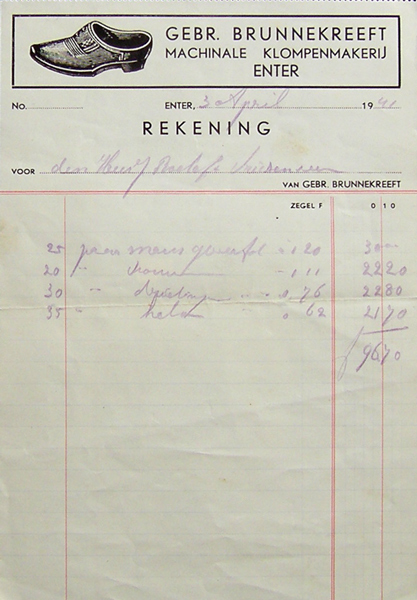 GEBR. BRUNNEKREEFT
MACHINALE KLOMPENMAKERIJ
ENTER
No. ENTER, 3 April 1941
REKENING
VOOR den Heer
VAN GEBR. BRUNNEKREEFT
ZEGEL F 0 10
25 paar mans 1 20 30
20 " - 1 11 22 20
30 " " 0,76 22 80
35 " 0 62 21 70
f 96 70